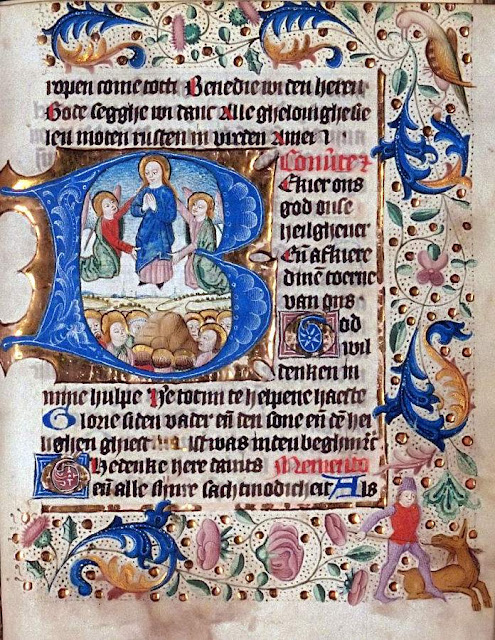 ropen come tot ti Benedie wi den heren
Gode segghe wi danc Alle ghelouighe sie
len moten rusten in vreden Amen
Conuerte
Bekier ons
god onse
heilgheuer
En afkiere
dine toerne
van ons
God
wil
denken in
mine hulpe Here tot mi te helpene haeste
Glorie si den vader en den sone en den hei
lighen gheest ist was in den beghinne
Ghedenke here dauits Memento
en alle sinre sachtmodicheit Als